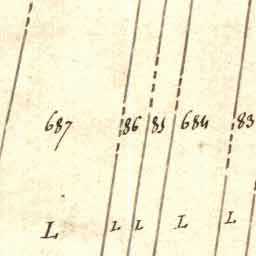 687 86 85 684 83
L L L L L